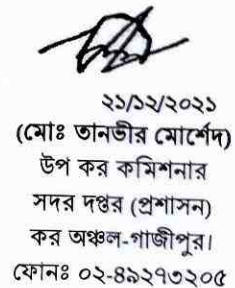 ২১/১২/২০২১
(মোঃ তানভীর মোর্শেদ)
উপ কর কমিশনার
সদর দপ্তর (প্রশাসন)
কর অঞ্চল-গাজীপুর।
ফোনঃ ০২-৪৯২৭৩২০৫